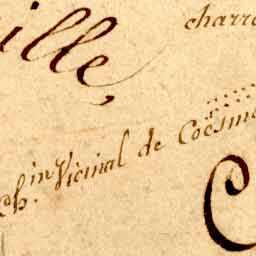 ille,
charr
Ch.in Vicinal de Coësm
C